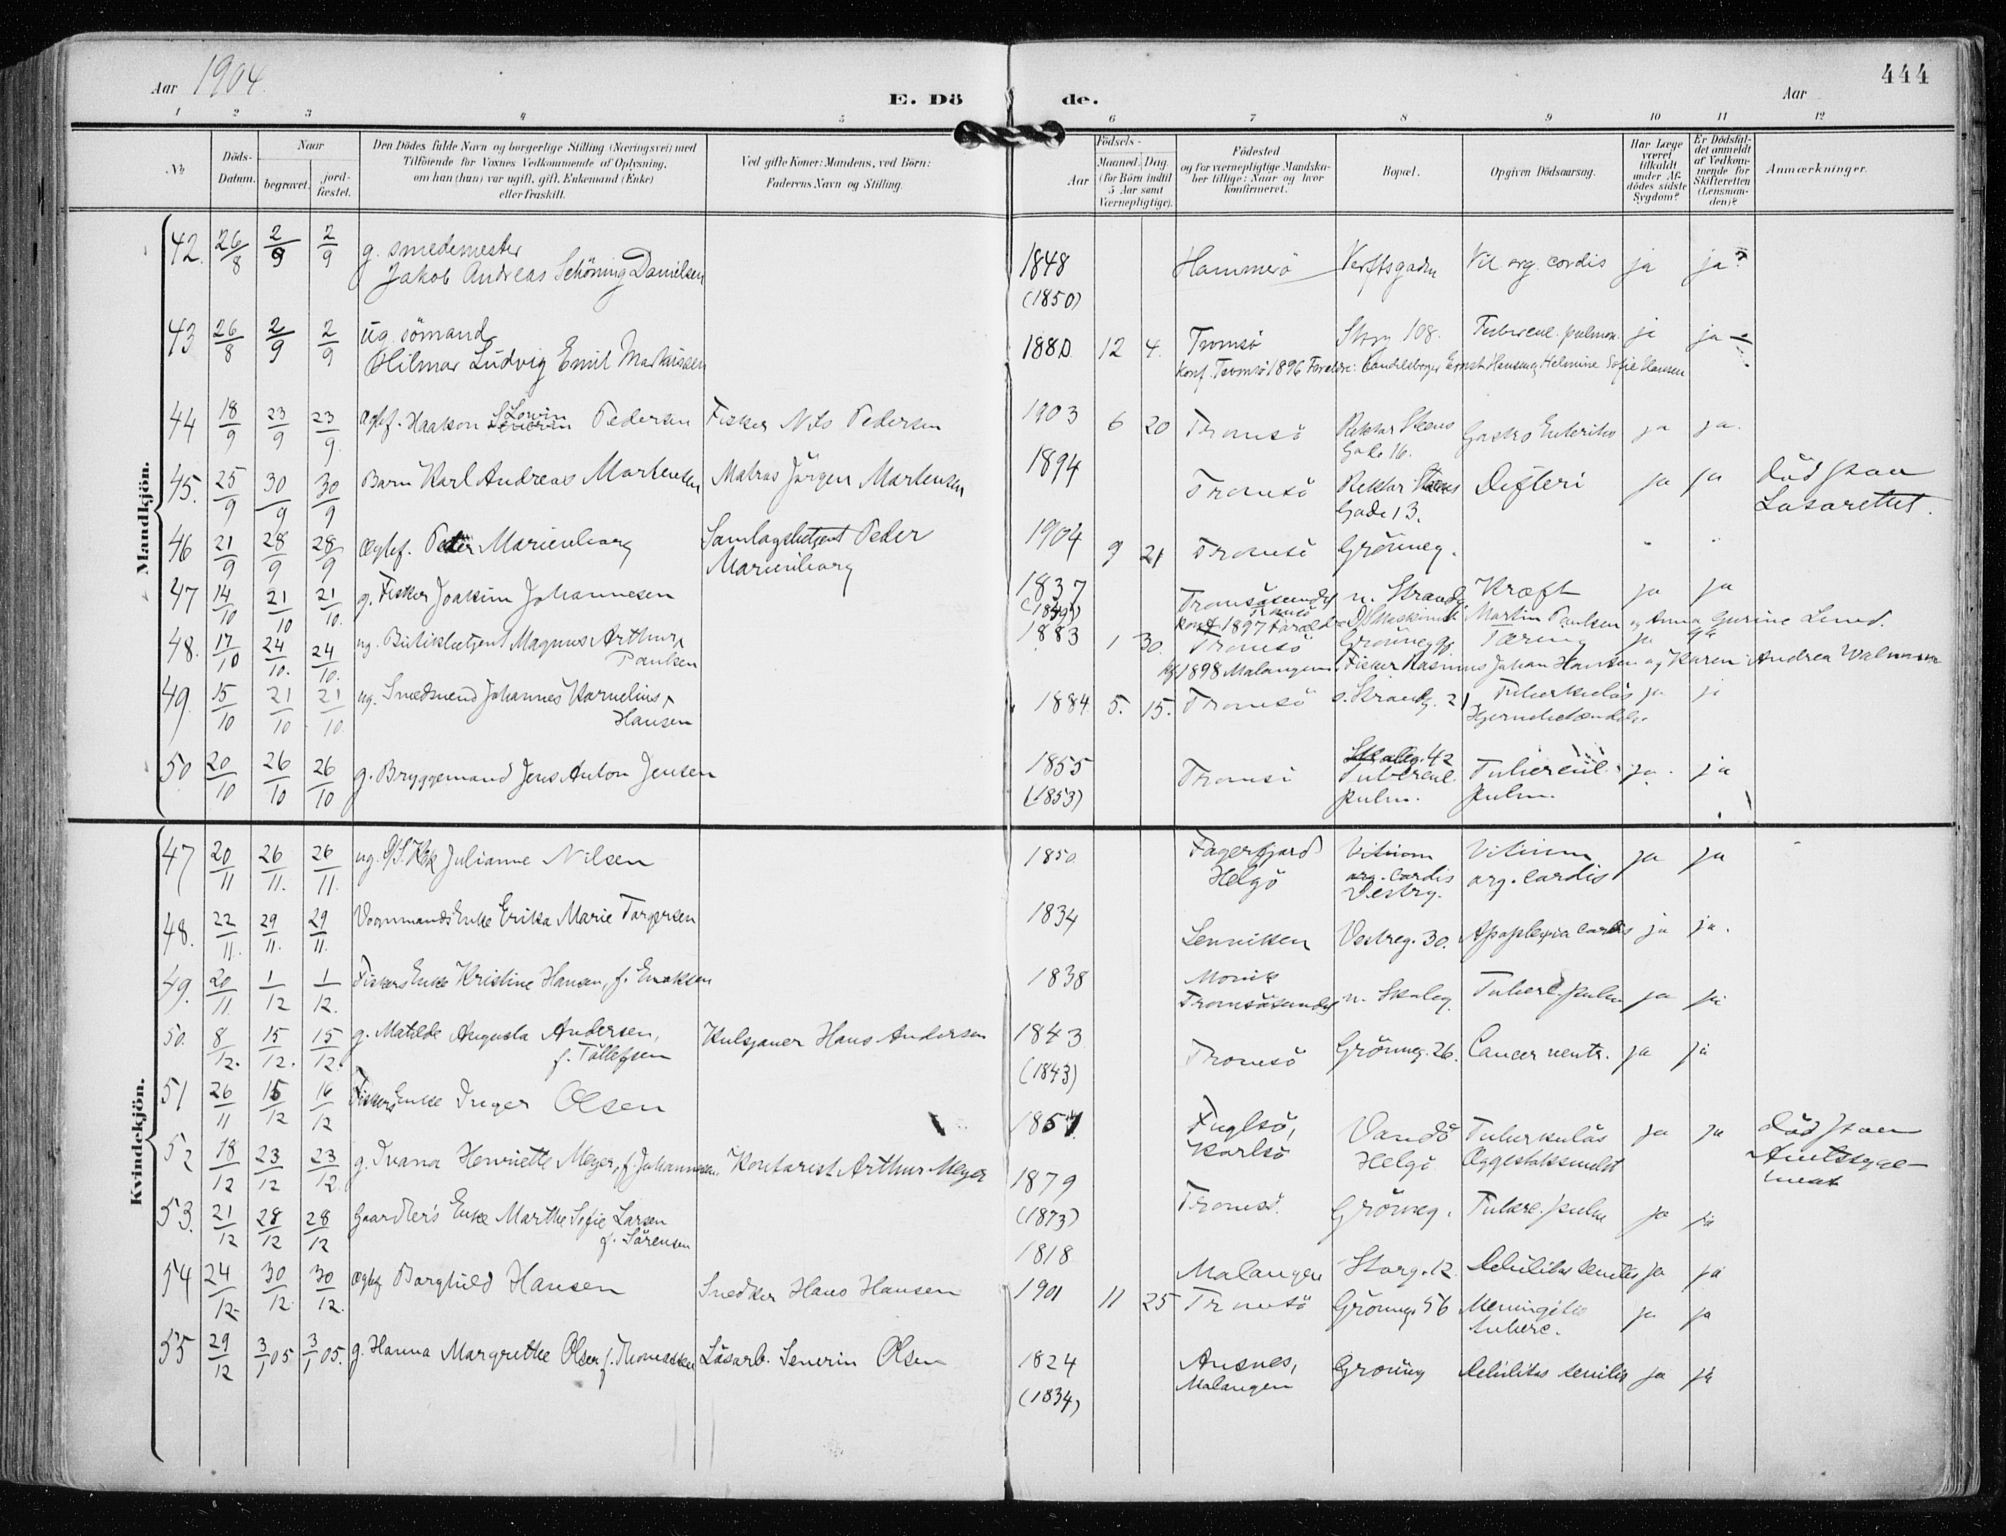 Aar 1904.
E. Dö de.
Aar
444
1 2 3 4 5 6 7 8 9 10 11 12
No
Döds-
Datum.
Naar
begravet.
jord-
fæstet.
Den Dödes fulde Navn og borgerlige Stilling (Næringsvei) med
Tilföiende for Voxnes Vedkommende af Oplysning,
om han (hun) var ugift, gift, Enkemand (Enke)
eller fraskilt.
Ved gifte Koner: Mandens, ved Börn:
Faderens Navn og Stilling.
Födsels-
Aar
Maaned. Dag.
(for Börn indtil
5 Aar samt
Værnepligtige).
Födested
og for værnepligtige Mandska-
ber tillige: Naar og hvor
konfirmeret.
Bopæl.
Opgiven Dödsaarsag.
Har Læge
været
tilkaldt
under Af-
dödes sidste
Sygdom?
Er Dödsfal-
det anmeldt
af Vedkom-
mende for
Skifteretten
(Lensman-
den)?
Anmærkninger.
Mandkjön.
42. 26/8 2/9 2/9 g. smedemester
Jakob Andreas Schöning Danielsen
1848 Hammerö Verftsgaden Vit org. cordis ja ja
(1850)
43 26/8 2/9 2/9 ug. sömand
Hilmar Ludvig Emil Markussen
1880 12 4. Tromsö Storg 108. Tubercul. pulmon. ja ja
Konf. Tromsö 1896 Forældre: Ernst Hansen og Helmine Sofie Hansen
44 18/9 23/9 23/9 Ægtef. Haakon Lowin Pedersen Fisker Nils Pedersen
1903 6 20 Tromsö Rektor Steens Gastro Enteritis ja ja.
Gade 16.
45. 25/9 30/9 30/9 Barn Karl Andreas Martensen Matros Jörgen Martensen
1894 Tromsö Rektor Steens Difteri ja ja Död paa
Gade 13. Lasarettet.
46 21/9 28/9 28/9 Ægtef. Peter Marienborg Samlagsbetjent Peder
Marienborg
1904 9 21 Tromsö Grönneg. " "
47 14/10 21/10 21/10. g. Fisker Joakim Johannesen
1837 Tromsösundet n. Strandg Kræft ja ja
Konf 1897 Forældre Maskinist Martin Paulsen og Anna Gurine Lined.
48. 17/10 24/10. 24/10. ug. Butikbetjent Magnus Arthur
Paulsen
1883 1 30. Tromsö Grönneg Tæring ja ja
1898 Malangen. Fisker Rasmus Johan Hansen og Karen Andrea
49. 15/10 21/10 21/10. ug. Snedsvend Johannes Kornelius
Hansen
1884 5. 15. Tromsö s. Strandg. 21 Tuberkulös ja ja
Hjernebetændelse
50 20/10 26/10 26/10 g. Bryggemand Jens Anton Jensen
1855 Tromsö Skoleg. 42 Tubercul. ja. ja
(1853) Tubercul. pulm.
pulm.
Kvindekjön.
47 20/11 26/11. 26/11. ug. Julianne Nilsen
1850 Fagerfjord Vitium Vitium ja ja
Helgö org. cordis org. cordis
Vestreg.
48. 22/11. 29/11. 29/11. Vognmands Enke Erika Marie Torgersen
1834 Lenviken Vestreg. 30. Apoplexia ja ja.
49. 20/11 1/12 1/12. Fiskers Enke Kristine Hansen, f. Enoksen
1838 Tromsösundet n. Skoleg. Tuberc. pulm ja ja
50. 8/12. 15/12. 15/12. g. Matilde Augusta Andersen,
f. Tollefsen
Kulsjauer Hans Andersen
1843 Tromsö Grönneg. 26. Cancer ventr. ja ja
(1843)
51 26/11 15/12 16/12 Fiskers Enke Inger Olsen
1851 Fuglsö, Vandö Tuberkulös ja ja Död paa
Karlsö Helgö Amtssyge-
52 18/12 23/12 23/12. g. Ivana Henriette Meyer, f. Johannesen Kontorist Arthur Meyer
1879 Tromsö. Grönneg. Tuberc. pulm ja ja
(1873)
53. 21/12 28/12 28/12 Gaardbr's Enke Marthe Sofie Larsen
f. Sörensen
1818 Malangen Storg. 12. Debilitas senilis ja ja
54 24/12. 30/12. 30/12. Ægtef Borghild Hansen Snedker Hans Hansen
1901 11 25 Tromsö Grönneg. 56 Meningitis ja ja
tuberc.
55 29/12 3/1 05 3/1 05. g. Hanna Margrethe Olsen f. Thomassen Lösarb. Severin Olsen
1824 Ansnes, Grönneg Debilitas senilis ja ja
(1834) Malangen